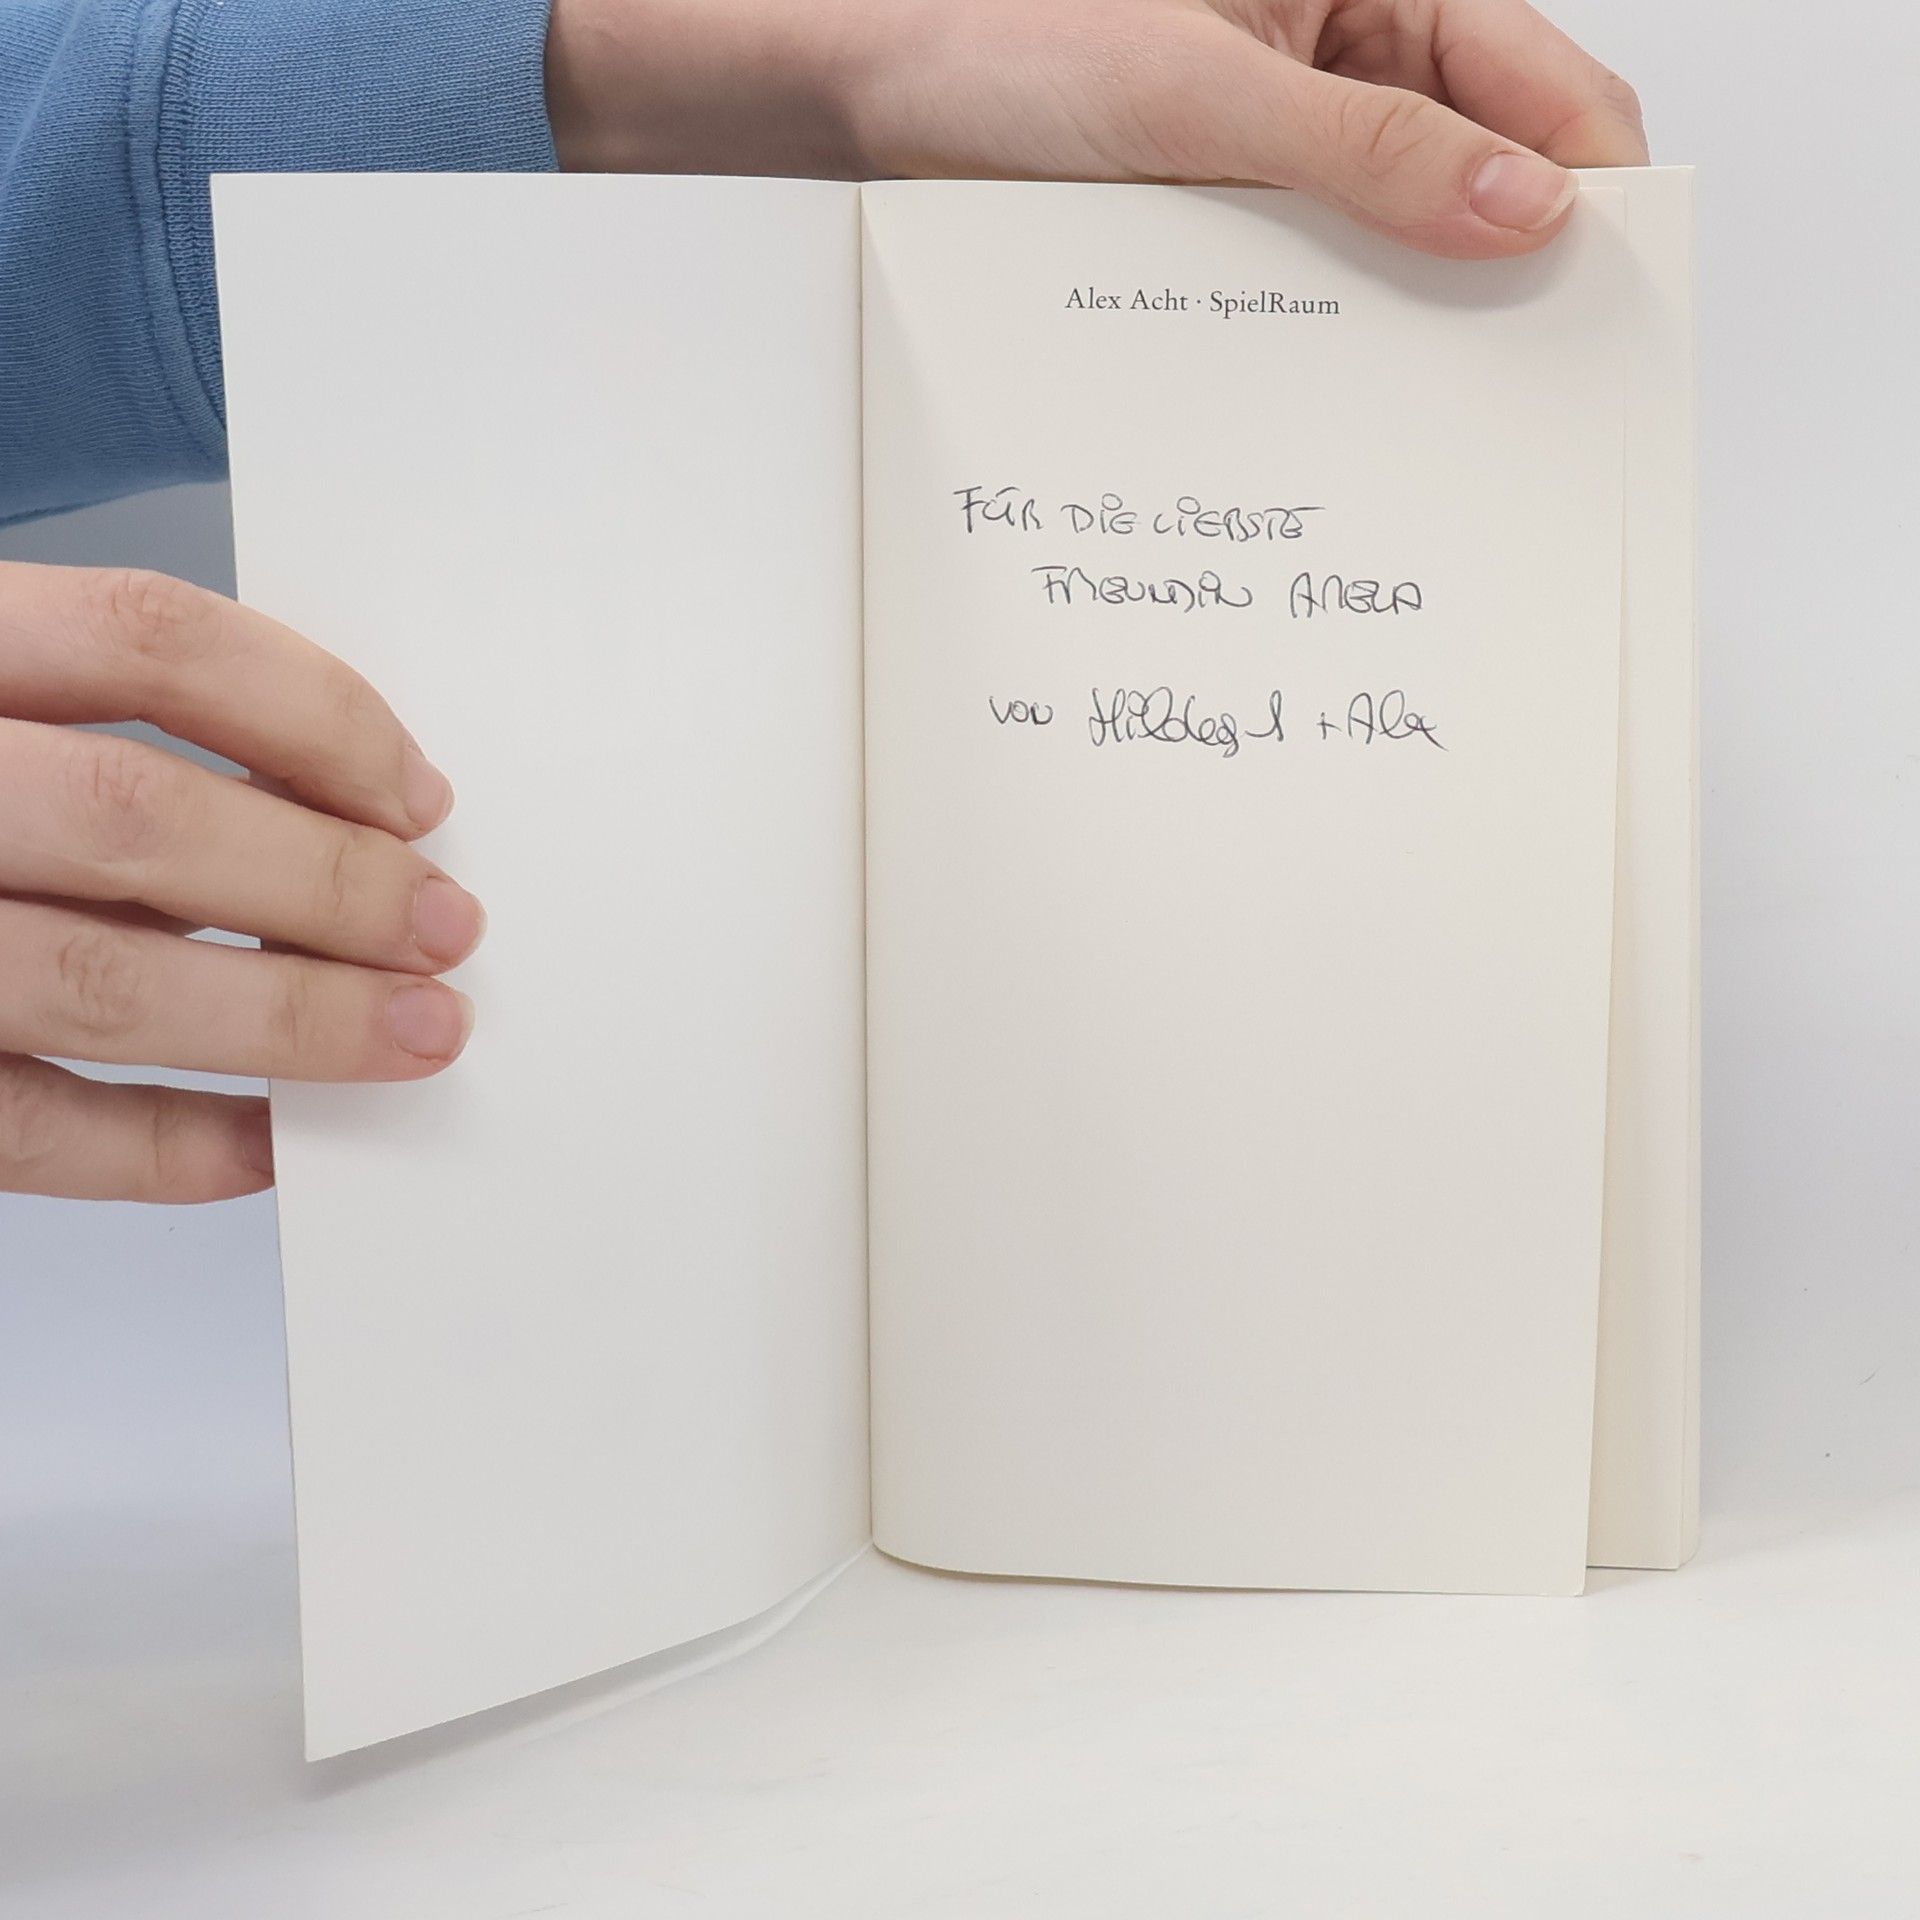 Alex Acht · SpielRaum
FÜR DIE LIEBSTE
FREUNDIN
von Hildegard + Alex